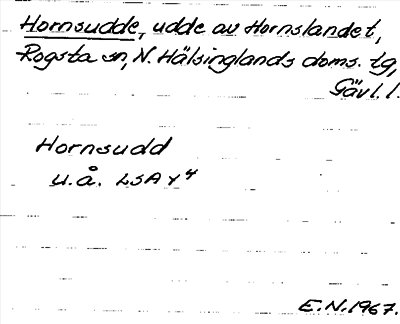 Hornsudde, udde av Hornslandet,
Rogsta sn, N. Hälsinglands doms. tg,
Gävl. l.
Hornsudd
u.å. LSA Y 4
E.N. 1967.